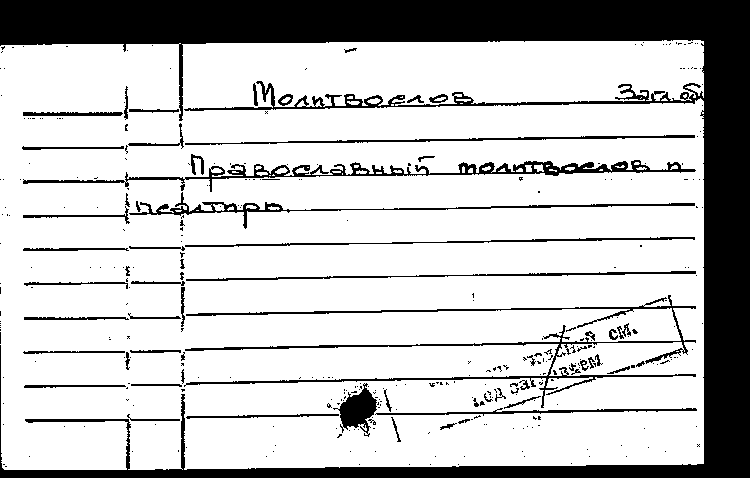 Молитвослов Загл.
Православный молитвослов и
псалтирь.
см.
под